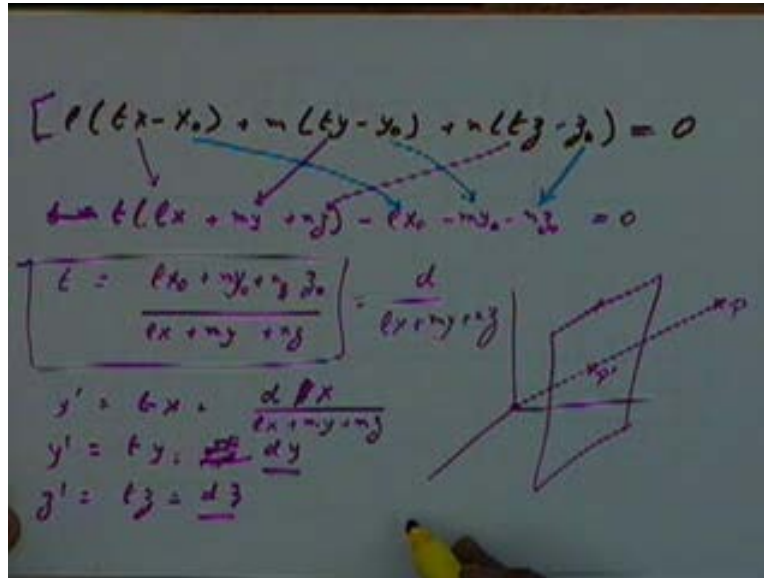 [ l(tx - x₀) + m(ty - y₀) + n(tz - z₀) = 0
t(lx + my + nz) - lx₀ - my₀ - nz₀ = 0
t = (lx₀ + my₀ + nz₀) / (lx + my + nz) = d / (lx + my + nz)
x' = tx = d x / (lx + my + nz)
y' = ty = dy
z' = tz = dz
P
P'